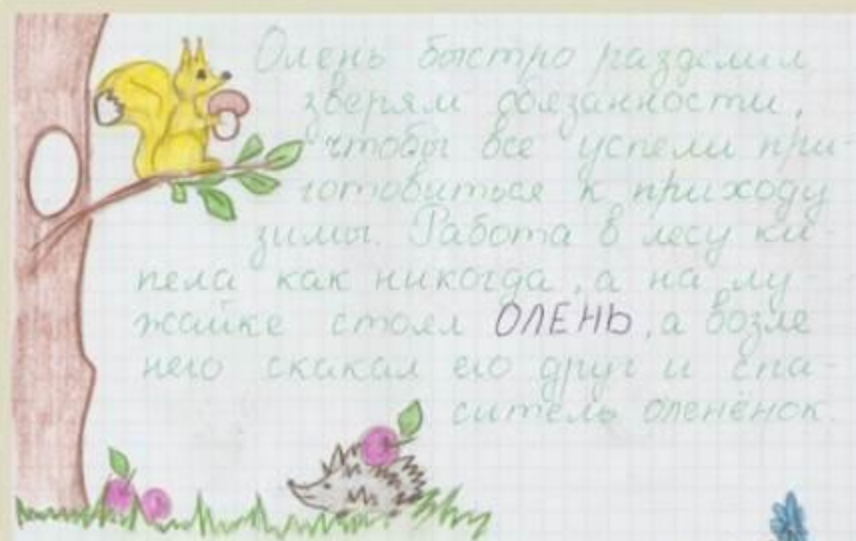 Олень быстро разделил
зверям обязанности,
чтобы все успели при-
готовиться к приходу
зимы. Работа в лесу ки-
пела как никогда, а на лу-
жайке стоял ОЛЕНЬ, а возле
него скакал его друг и спа-
ситель оленёнок.